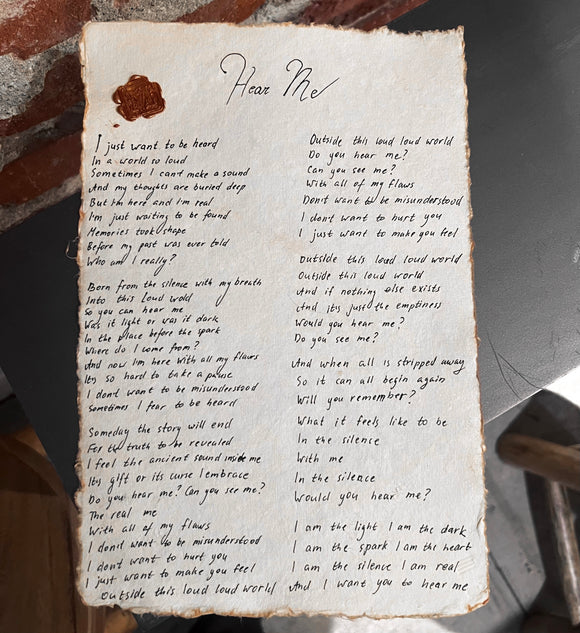 Hear Me
I just want to be heard
In a world so loud
Sometimes I cant make a sound
And my thoughts are buried deep
But I'm here and I'm real
I'm just waiting to be found
Memories took shape
Before my past was ever told
Who am I really?
Born from the silence with my breath
Into this loud wold
So you can hear me
Was it light or was it dark
In the place before the spark
Where do I come from?
And now I'm here with all my flaws
Its so hard to take a pause
I dont want to be misunderstood
Sometimes I fear to be heard
Someday the story will end
For the truth to be revealed
I feel the ancient sound inside me
Its gift or its curse I embrace
Do you hear me? Can you see me?
The real me
With all of my flaws
I don't want to be misunderstood
I don't want to hurt you
I just want to make you feel
Outside this loud loud world
Outside this loud loud world
Do you hear me?
Can you see me?
With all of my flaws
Don't want to be misunderstood
I don't want to hurt you
I just want to make you feel
Outside this loud loud world
Outside this loud world
And if nothing else exists
And its just the emptiness
Would you hear me?
Do you see me?
And when all is stripped away
So it can all begin again
Will you remember?
What it feels like to be
In the silence
With me
In the silence
Would you hear me?
I am the light I am the dark
I am the spark I am the heart
I am the silence I am real
And I want you to hear me